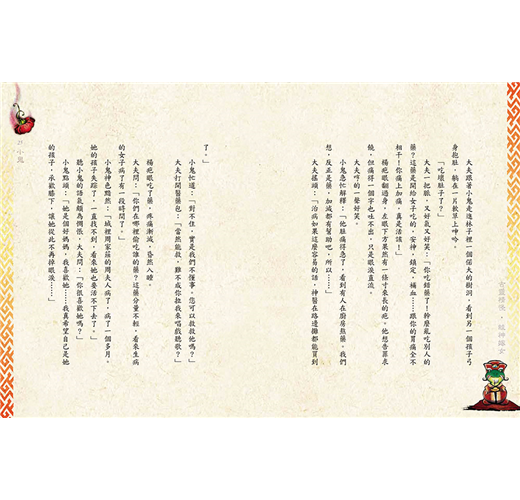 大夫跟著小鬼走進林子裡一個偌大的樹洞，看到另一個孩子弓
身抱肚，躺在一片軟草上呻吟。
「吃壞肚子了？」
大夫一把脈，又好氣又好笑：「你吃錯藥了！幹麼亂吃別人的
藥？這藥是開給女子吃的，安神、鎮定、補血……跟你的胃痛全不
相干！你痛上加痛，真是活該！」
楊疤眼翻過身，左眼下方果然有一條寸來長的疤。他想告罪求
饒，但痛得一個字也吐不出，只是眼淚直流。
大夫哼的一聲好笑。
小鬼急忙解釋：「他肚痛得急了，看到有人在廚房熬藥，我們
想，反正是藥，加減都有幫助吧，所以……」
大夫搖頭：「治病如果這麼容易的話，神醫在路邊攤都能買到
了。」
小鬼忙道：「對不住，實是我們不懂事。您可以救救他嗎？」
大夫打開醫藥包：「當然能救，難不成你拉我來唱戲聽歌？」
楊疤眼吃了藥，疼痛漸減，昏然入睡。
大夫問：「你們在哪裡偷吃誰的藥？這藥分量不輕，看來生病
的女子病了有一段時間了。」
小鬼神色黯然：「城裡周家莊的周夫人病了，病了一個多月。
她的孩子失蹤了，一直找不到，看來她也要活不下去了。」
聽小鬼的語氣頗為惆悵，大夫問：「你很喜歡她嗎？」
小鬼點頭：「她是個好媽媽，我喜歡她……我真希望自己是她
的孩子，承歡膝下，讓她從此不再掉眼淚……」
21 小鬼